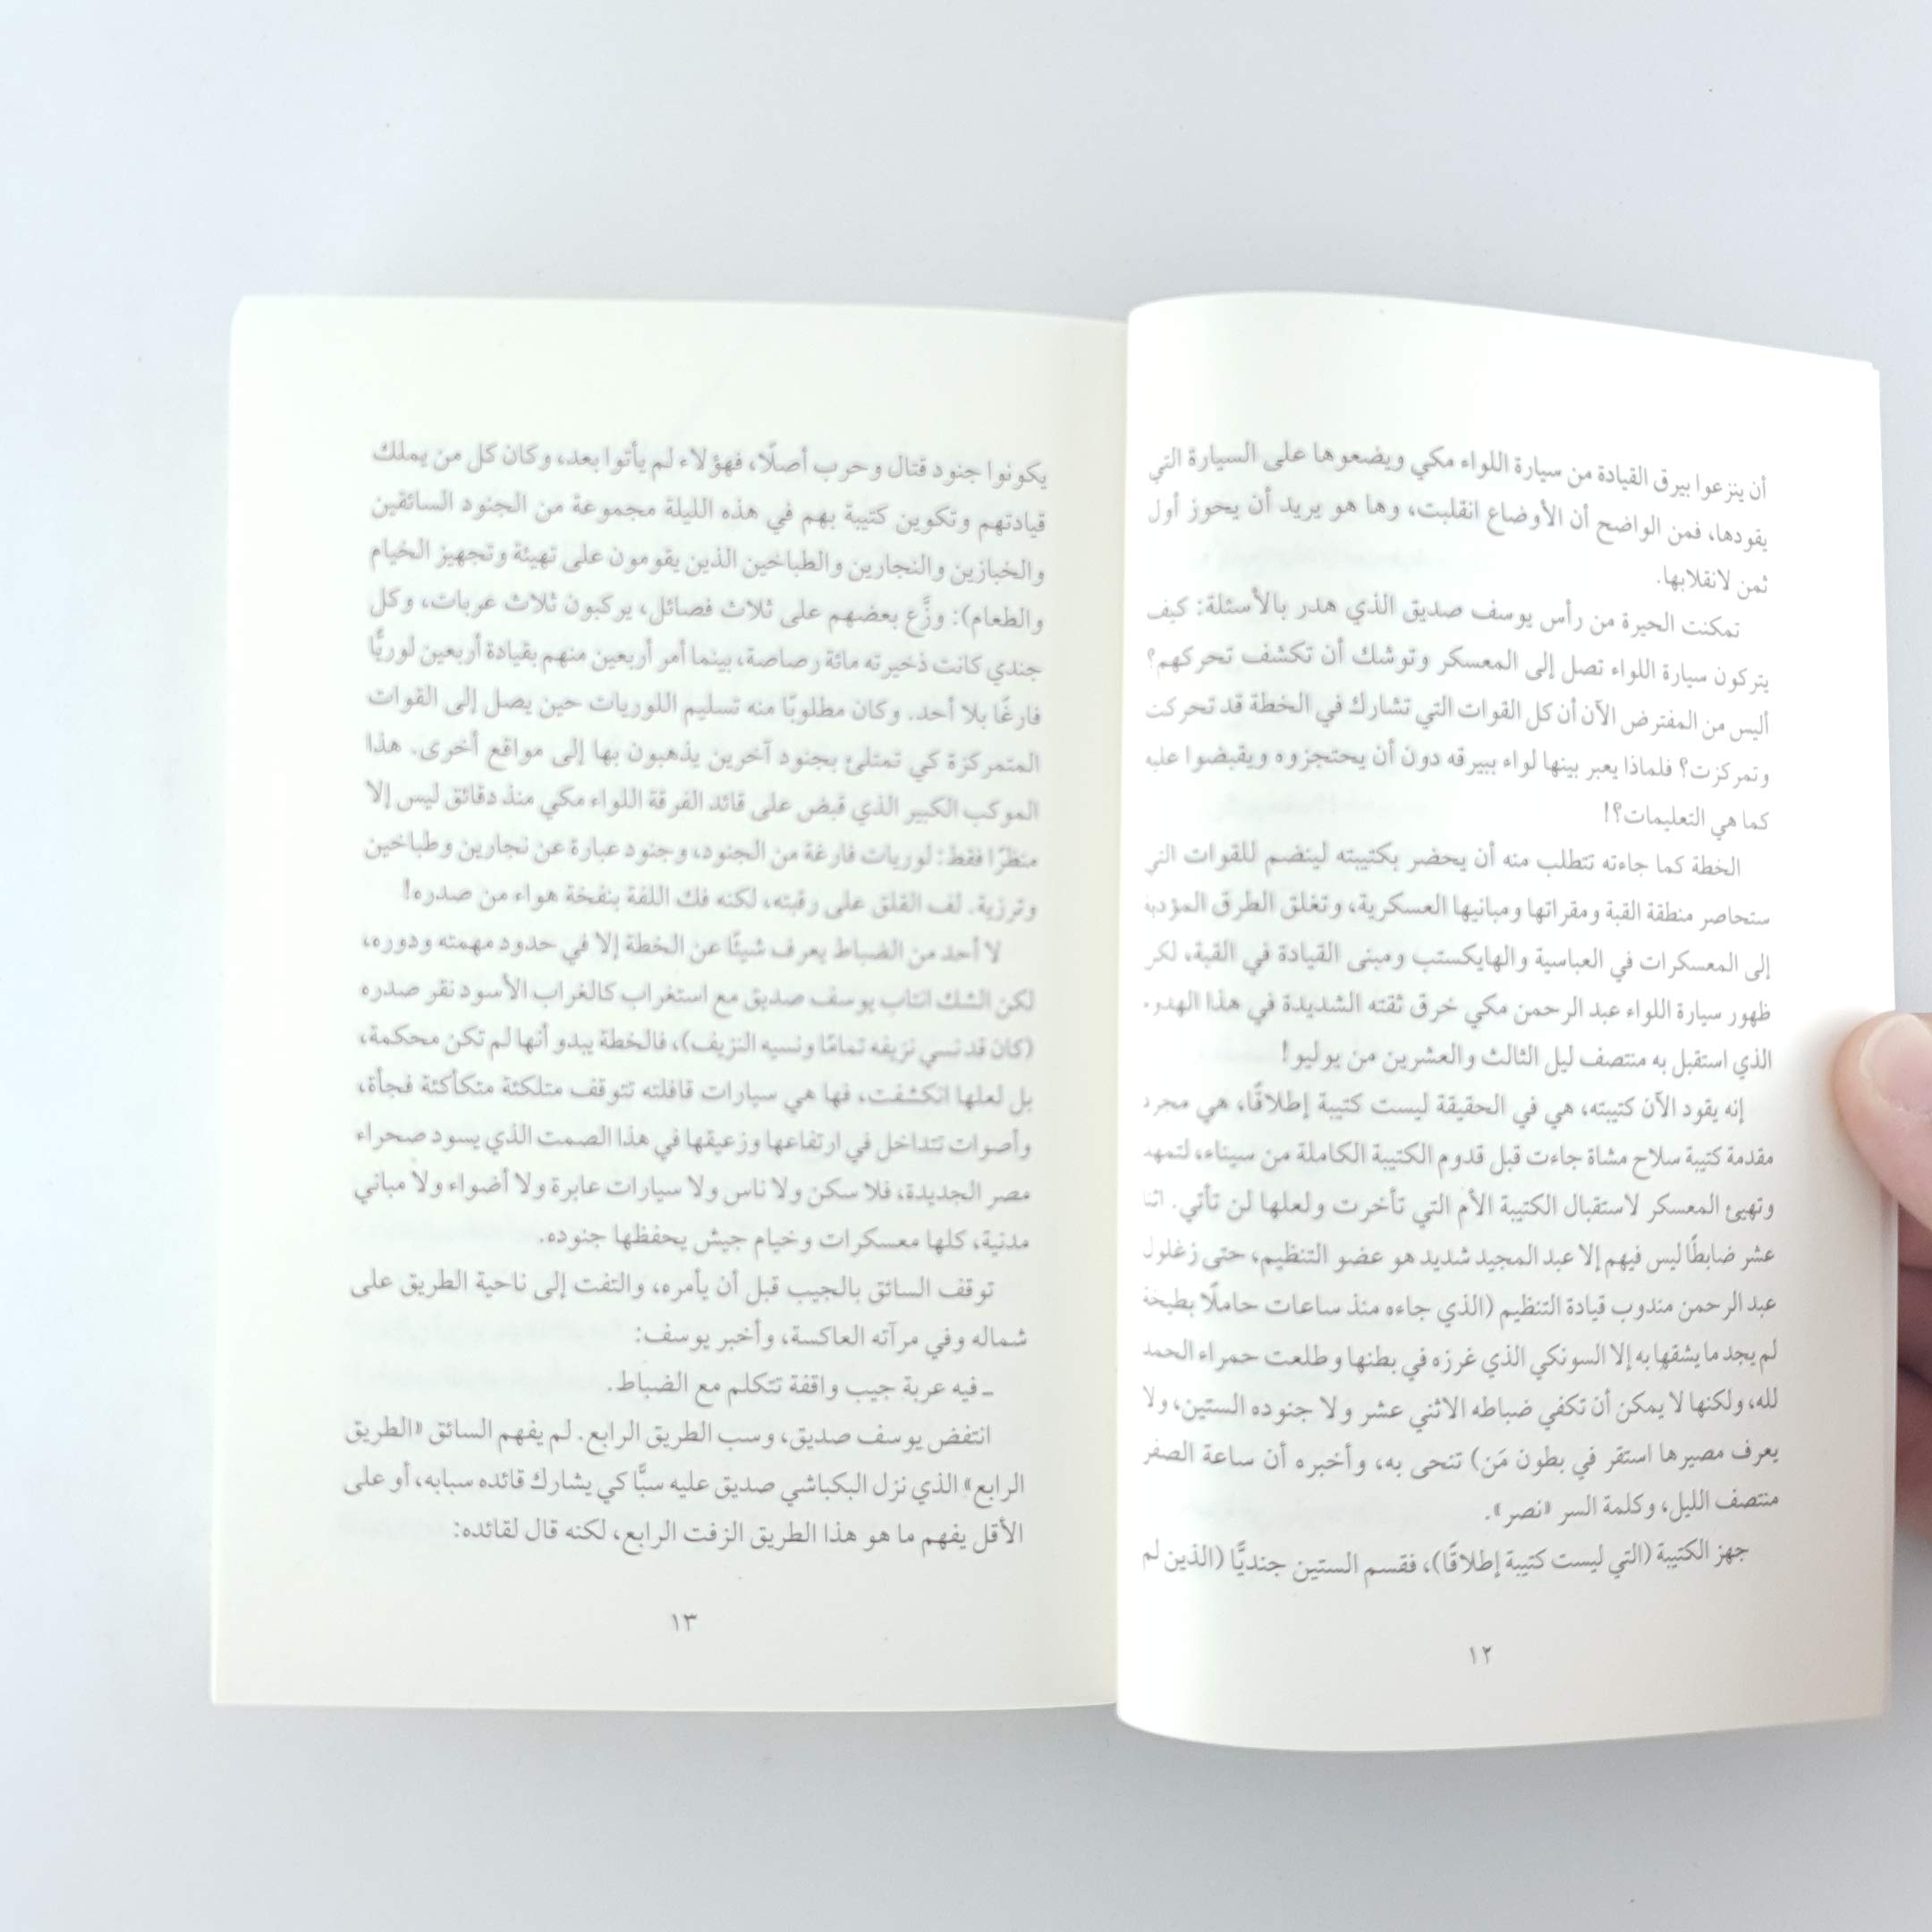 أن ينزعوا بيرق القيادة من سيارة اللواء مكي ويضعوها على السيارة التي
يقودها، فمن الواضح أن الأوضاع انقلبت، وها هو يريد أن يحوز أول
ثمن لانقلابها.
تمكنت الحيرة من رأس يوسف صديق الذي هدر بالأسئلة: كيف
يتركون سيارة اللواء تصل إلى المعسكر وتوشك أن تكشف تحركهم؟
أليس من المفترض الآن أن كل القوات التي تشارك في الخطة قد تحركت
وتمركزت؟ فلماذا يعبر بينها لواء ببيرقه دون أن يحتجزوه ويقبضوا عليه
كما هي التعليمات؟!
الخطة كما جاءته تتطلب منه أن يحضر بكتيبته لينضم للقوات التي
ستحاصر منطقة القبة ومقراتها ومبانيها العسكرية، وتغلق الطرق المؤدية
إلى المعسكرات في العباسية والهايكستب ومبنى القيادة في القبة، لكن
ظهور سيارة اللواء عبد الرحمن مكي خرق ثقته الشديدة في هذا الهدوء
الذي استقبل به منتصف ليل الثالث والعشرين من يوليو!
إنه يقود الآن كتيبته، هي في الحقيقة ليست كتيبة إطلاقًا، هي مجرد
مقدمة كتيبة سلاح مشاة جاءت قبل قدوم الكتيبة الكاملة من سيناء، لتمهد
وتهيئ المعسكر لاستقبال الكتيبة الأم التي تأخرت ولعلها لن تأتي. اثنا
عشر ضابطًا ليس فيهم إلا عبد المجيد شديد هو عضو التنظيم، حتى زغلول
عبد الرحمن مندوب قيادة التنظيم (الذي جاءه منذ ساعات حاملًا بطيخة
لم يجد ما يشقها به إلا السونكي الذي غرزه في بطنها وطلعت حمراء الحمد
لله، ولكنها لا يمكن أن تكفي ضباطه الاثني عشر ولا جنوده الستين، ولا
يعرف مصيرها استقر في بطون مَن) تنحى به، وأخبره أن ساعة الصفر
منتصف الليل، وكلمة السر «نصر».
جهز الكتيبة (التي ليست كتيبة إطلاقًا)، فقسم الستين جنديًّا (الذين لم
١٢
يكونوا جنود قتال وحرب أصلًا، فهؤلاء لم يأتوا بعد، وكان كل من يملك
قيادتهم وتكوين كتيبة بهم في هذه الليلة مجموعة من الجنود السائقين
والخبازين والنجارين والطباخين الذين يقومون على تهيئة وتجهيز الخيام
والطعام): وزَّع بعضهم على ثلاث فصائل، يركبون ثلاث عربات، وكل
جندي كانت ذخيرته مائة رصاصة، بينما أمر أربعين منهم بقيادة أربعين لوريًّا
فارغًا بلا أحد. وكان مطلوبًا منه تسليم اللوريات حين يصل إلى القوات
المتمركزة كي تمتلئ بجنود آخرين يذهبون بها إلى مواقع أخرى. هذا
الموكب الكبير الذي قبض على قائد الفرقة اللواء مكي منذ دقائق ليس إلا
منظرًا فقط: لوريات فارغة من الجنود، وجنود عبارة عن نجارين وطباخين
وترزية. لف القلق على رقبته، لكنه فك اللفة بنفخة هواء من صدره!
لا أحد من الضباط يعرف شيئًا عن الخطة إلا في حدود مهمته ودوره،
لكن الشك انتاب يوسف صديق مع استغراب كالغراب الأسود نقر صدره
(كان قد نسي نزيفه تمامًا ونسيه النزيف)، فالخطة يبدو أنها لم تكن محكمة،
بل لعلها انكشفت، فها هي سيارات قافلته تتوقف متلكئة متكأكئة فجأة،
وأصوات تتداخل في ارتفاعها وزعيقها في هذا الصمت الذي يسود صحراء
مصر الجديدة، فلا سكن ولا ناس ولا سيارات عابرة ولا أضواء ولا مباني
مدنية، كلها معسكرات وخيام جيش يحفظها جنوده.
توقف السائق بالجيب قبل أن يأمره، والتفت إلى ناحية الطريق على
شماله وفي مرآته العاكسة، وأخبر يوسف:
ـ فيه عربة جيب واقفة تتكلم مع الضباط.
انتفض يوسف صديق، وسب الطريق الرابع. لم يفهم السائق «الطريق
الرابع» الذي نزل البكباشي صديق عليه سبًّا كي يشارك قائده سبابه، أو على
الأقل يفهم ما هو هذا الطريق الزفت الرابع، لكنه قال لقائده:
١٣